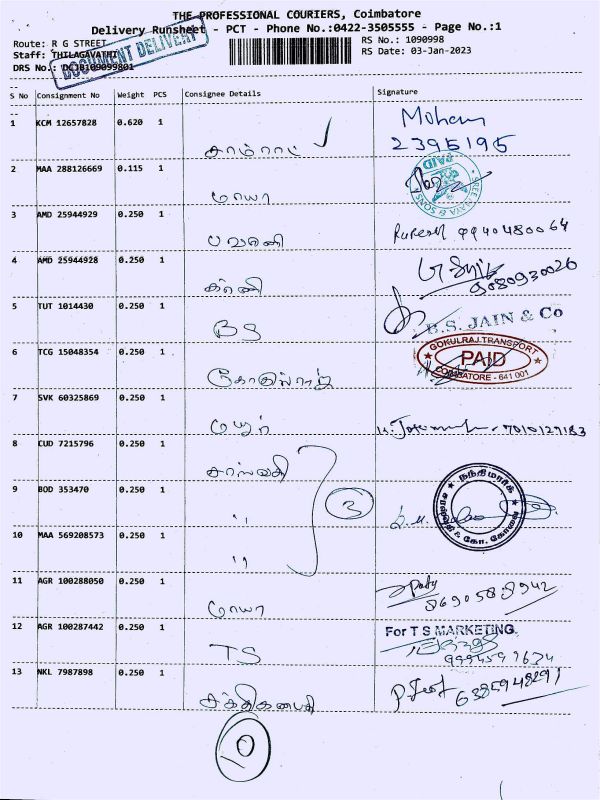 THE PROFESSIONAL COURIERS, Coimbatore
Delivery Runsheet - PCT - Phone No.:0422-3505555 - Page No.:1
Route: R G STREET
RS No.: 1090998
Staff: THILAGAVATHI
RS Date: 03-Jan-2023
DRS No.: DCJB109099801
DOCUMENT DELIVERY
S No Consignment No Weight PCS Consignee Details Signature
1 KCM 12657828 0.620 1 காம்ராட் Mohan
2395195
2 MAA 288126669 0.115 1 மாயா
PAID
SREE MAYA & SONS
3 AMD 25944929 0.250 1 பவானி Rupesh 9940480064
4 AMD 25944928 0.250 1
5 TUT 1014430 0.250 1 BS
B.S. JAIN & Co
6 TCG 15048354 0.250 1
GOKULRAJ TRANSPORT
PAID
COIMBATORE - 641 001
7 SVK 60325869 0.250 1 மயூர் 7010127183
8 CUD 7215796 0.250 1
9 BOD 353470 0.250 1 " 3
நந்திமார்க்
10 MAA 569208573 0.250 1 "
11 AGR 100288050 0.250 1 மாயா
8690588942
12 AGR 100287442 0.250 1 TS
For T S MARKETING.
13 NKL 7987898 0.250 1 சக்திகணபதி 6385948291
10